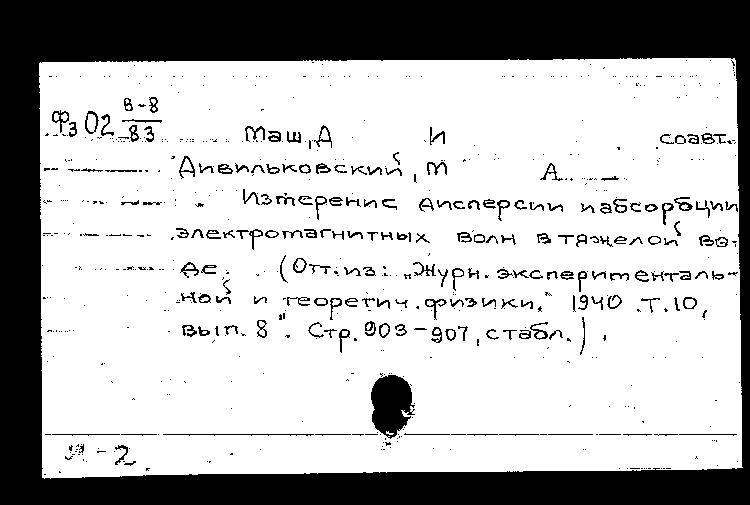 Фз 02 В-8/83
Маш, Д И соавт.
Дивильковский, М А
Измерение дисперсии и абсорбции
электромагнитных волн в тяжелой во-
де. (Отт. из: „Журн. эксперименталь-
ной и теоретич. физики." 1940. Т. 10,
вып. 8". Стр. 903-907, с табл.).
-2